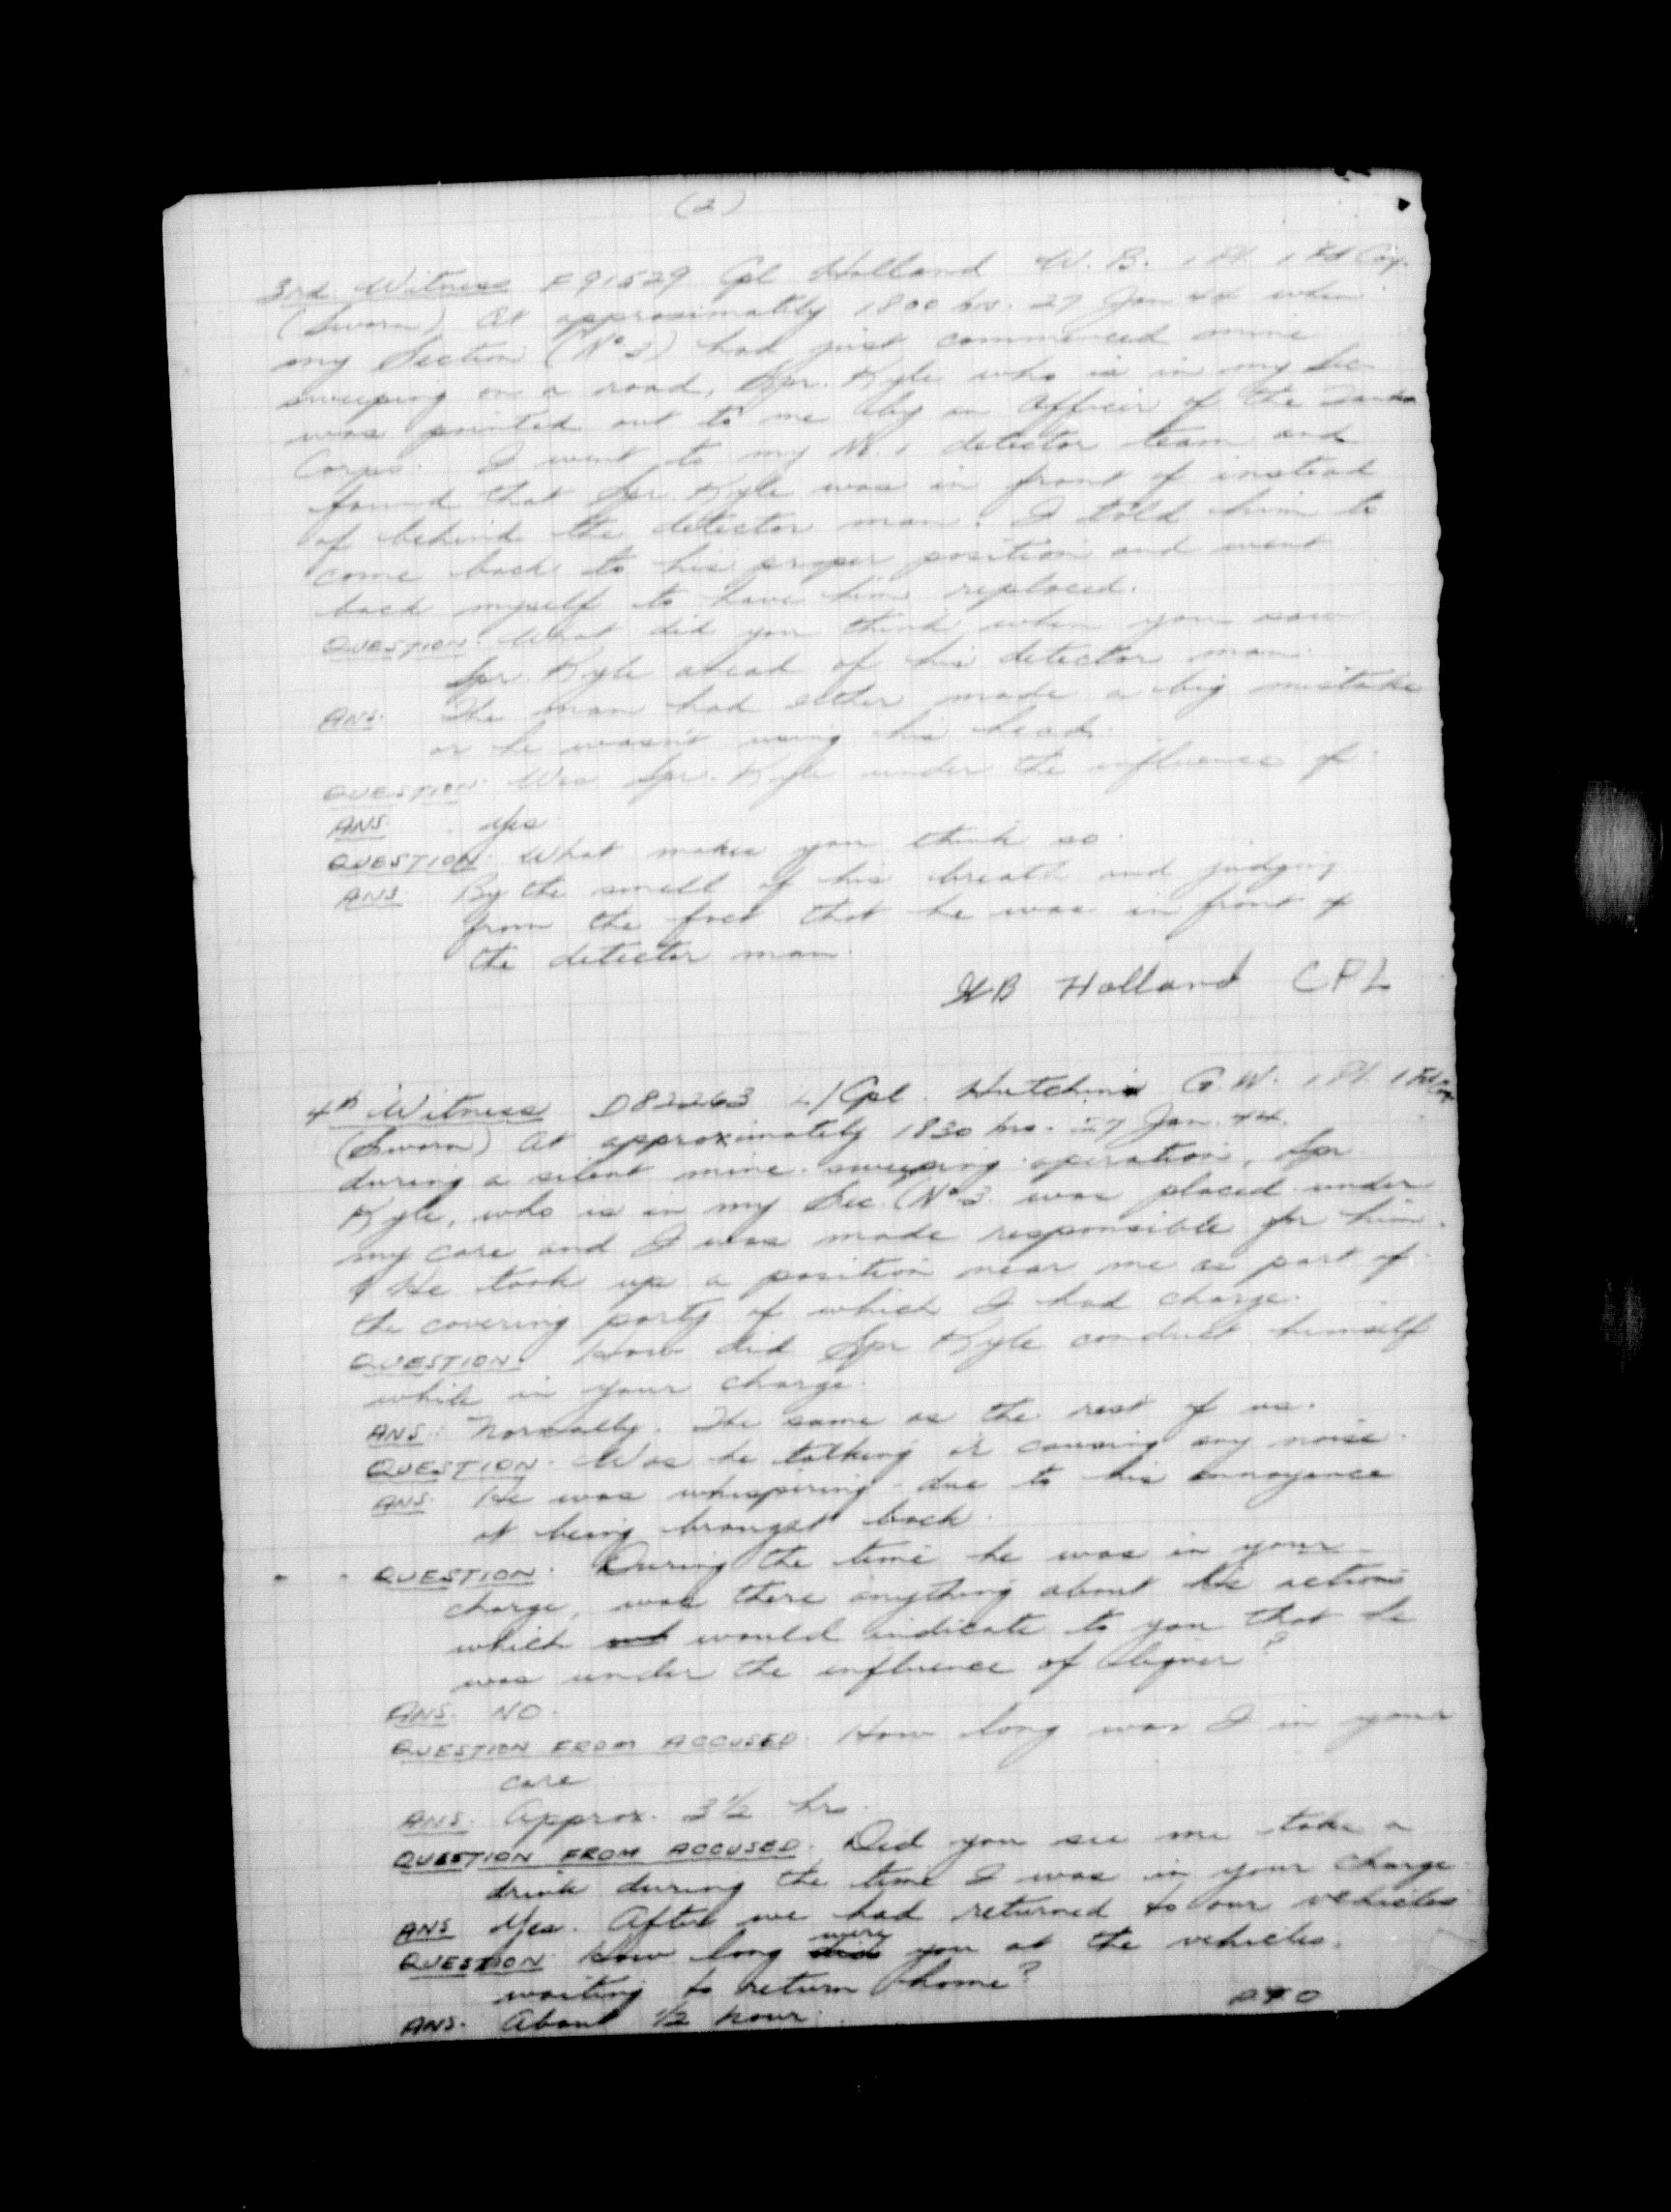 (2)
3rd Witness F91529 Cpl Holland W.B. 1 Pl. 1 Fd Coy.
(Sworn) At approximately 1800 hrs. 27 Jan 44 when
my Section (No 3) had just commenced mine
sweeping on a road, Spr. Kyle who is in my Sec
was pointed out to me by an Officer of the Tank
Corps. I went to my No. 1 detector team and
found that Spr. Kyle was in front of instead
of behind the detector man. I told him to
come back to his proper position and went
back myself to have him replaced.
QUESTION. What did you think when you saw
Spr. Kyle ahead of his detector man.
ANS. The man had either made a big mistake
or he wasn't using his head.
QUESTION. Was Spr. Kyle under the influence of
ANS. Yes
QUESTION. What makes you think so.
ANS. By the smell of his breath and judging
from the fact that he was in front of
the detector man.
WB Holland CPL
4th Witness D82263 L/Cpl. Hutchins G.W. 1 Pl. 1 Fd Coy
(Sworn) At approximately 1830 hrs. 27 Jan. 44.
during a silent mine sweeping operation, Spr
Kyle, who is in my Sec. (No 3 was placed under
my care and I was made responsible for him.
He took up a position near me as part of
the covering party of which I had charge.
QUESTION. How did Spr Kyle conduct himself
while in your charge.
ANS. Normally. The same as the rest of us.
QUESTION. Was he talking or causing any noise.
ANS. He was whispering - due to his annoyance
at being brought back.
QUESTION. During the time he was in your
charge, was there anything about his actions
which would indicate to you that he
was under the influence of liquer?
ANS. NO.
QUESTION FROM ACCUSED. How long was I in your
care
ANS. Approx. 3 1/2 hrs.
QUESTION FROM ACCUSED. Did you see me take a
drink during the time I was in your charge
ANS Yes. After we had returned to our vehicles
QUESTION How long did were you at the vehicles.
waiting to return home?
ANS. About 1/2 hour.
PTO